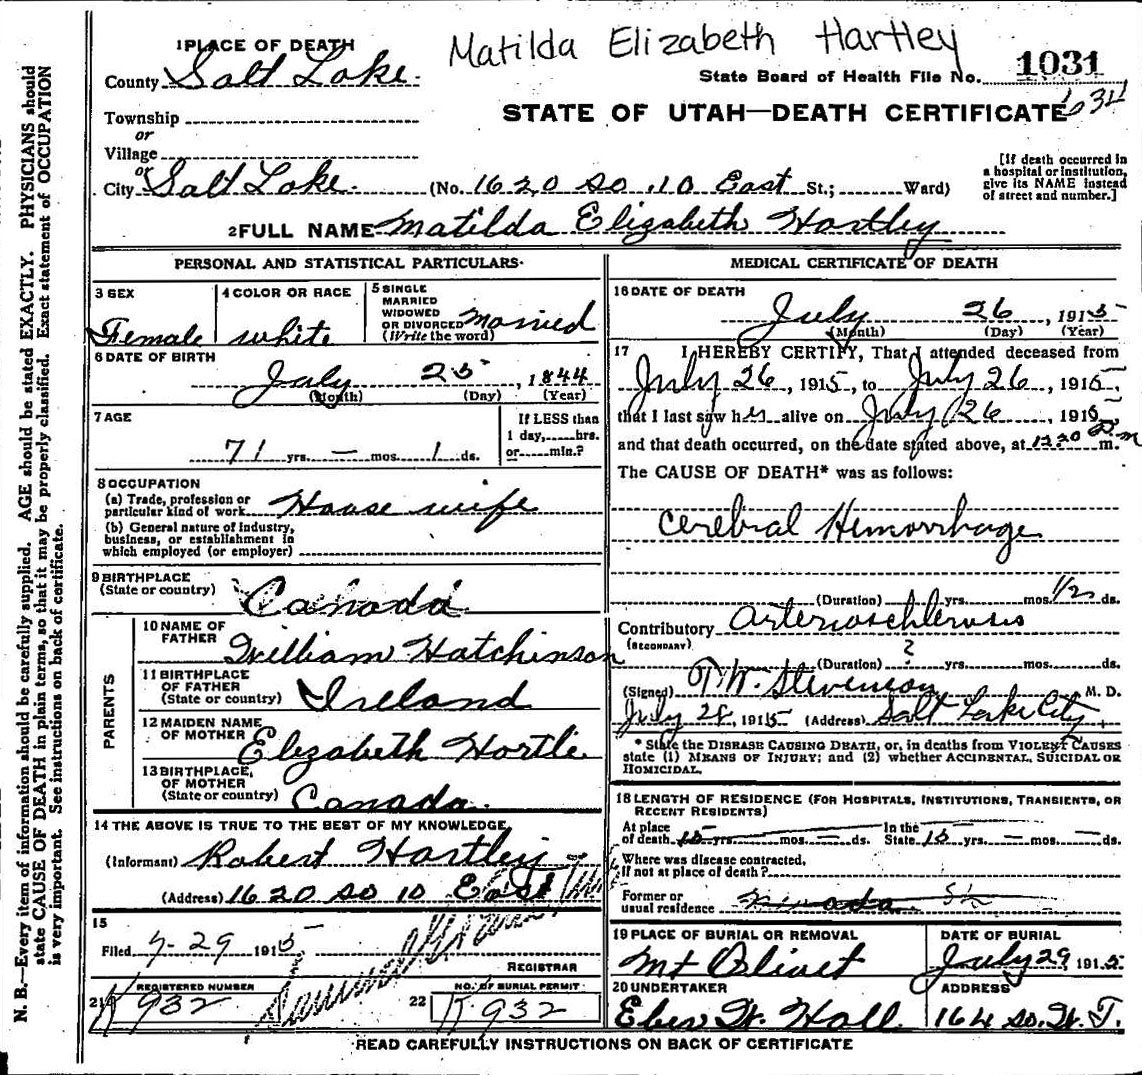 Matilda Elizabeth Hartley
1 PLACE OF DEATH
County Salt Lake.
State Board of Health File No. 1031
634
Township
or
Village
or
City Salt Lake. (No. 1620 So. 10 East St.; Ward)
STATE OF UTAH—DEATH CERTIFICATE
[If death occurred in
a hospital or institution,
give its NAME instead
of street and number.]
2 FULL NAME Matilda Elizabeth Hartley
PERSONAL AND STATISTICAL PARTICULARS.
3 SEX
Female
4 COLOR OR RACE
white
5 SINGLE
MARRIED
WIDOWED
OR DIVORCED
(Write the word)
Married
6 DATE OF BIRTH
July 25, 1844
(Month) (Day) (Year)
7 AGE
71 yrs. — mos. 1 ds.
If LESS than
1 day,.....hrs.
or.....min.?
8 OCCUPATION
(a) Trade, profession or
particular kind of work House wife
(b) General nature of industry,
business, or establishment in
which employed (or employer)
9 BIRTHPLACE
(State or country) Canada
PARENTS
10 NAME OF
FATHER William Hutchinson
11 BIRTHPLACE
OF FATHER
(State or country) Ireland
12 MAIDEN NAME
OF MOTHER Elizabeth Hortle
13 BIRTHPLACE,
OF MOTHER
(State or country) Canada.
14 THE ABOVE IS TRUE TO THE BEST OF MY KNOWLEDGE
(Informant) Robert Hartley
(Address) 1620 So 10 East
15
Filed 7-29 1915
REGISTRAR
REGISTERED NUMBER
21 K 932
NO. OF BURIAL PERMIT
22 K 932
MEDICAL CERTIFICATE OF DEATH
16 DATE OF DEATH
July 26, 1915
(Month) (Day) (Year)
17 I HEREBY CERTIFY, That I attended deceased from
July 26, 1915, to July 26, 1915,
that I last saw her alive on July 26, 1915,
and that death occurred, on the date stated above, at 12 20 P.m m.
The CAUSE OF DEATH* was as follows:
Cerebral Hemorrhage
(Duration) yrs. mos. 1/2 ds.
Contributory Arterioschlerosis
(SECONDARY)
(Duration) ? yrs. mos. ds.
(Signed) T. W. Stevenson M. D.
July 28, 1915 (Address) Salt Lake City
* State the DISEASE CAUSING DEATH, or, in deaths from VIOLENT CAUSES
state (1) MEANS OF INJURY; and (2) whether ACCIDENTAL, SUICIDAL OR
HOMICIDAL.
18 LENGTH OF RESIDENCE (FOR HOSPITALS, INSTITUTIONS, TRANSIENTS, OR
RECENT RESIDENTS)
At place
of death 15 yrs. — mos. — ds.
In the
State 15 yrs. — mos. — ds.
Where was disease contracted,
if not at place of death?
Former or
usual residence Nevada
19 PLACE OF BURIAL OR REMOVAL
Mt Olivet
DATE OF BURIAL
July 29, 1915
20 UNDERTAKER
Eber W. Hall.
ADDRESS
164 So. W. T.
READ CAREFULLY INSTRUCTIONS ON BACK OF CERTIFICATE
N. B.—Every item of information should be carefully supplied. AGE should be stated EXACTLY. PHYSICIANS should
state CAUSE OF DEATH in plain terms, so that it may be properly classified. Exact statement of OCCUPATION
is very important. See instructions on back of certificate.